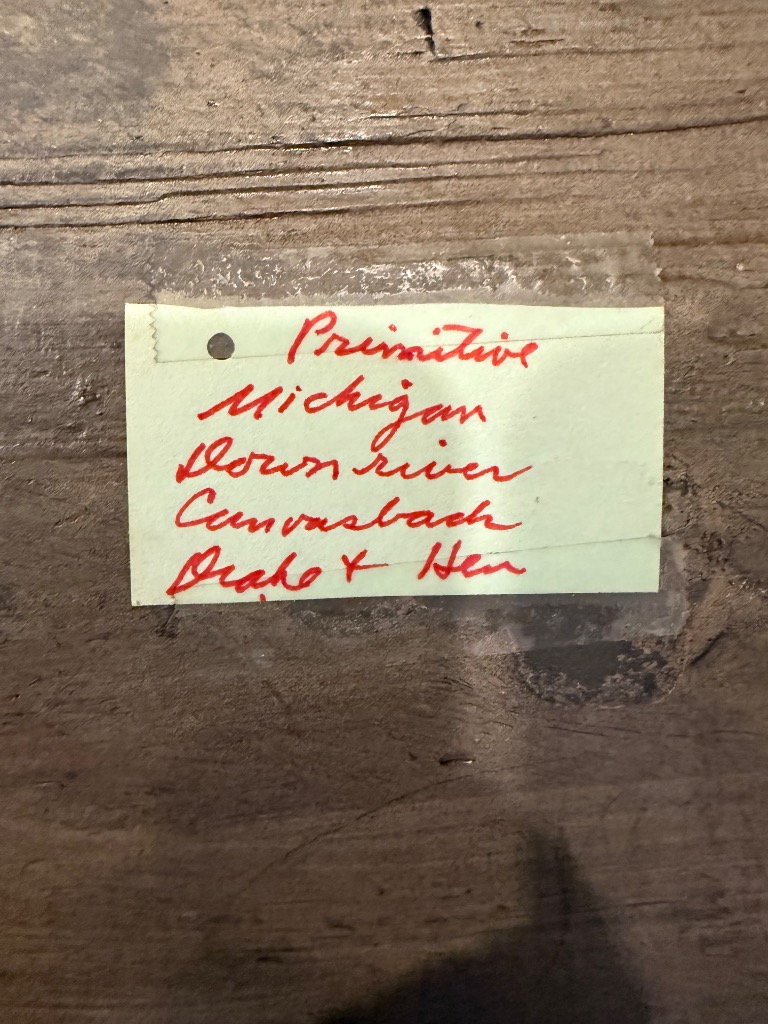 Primitive
Michigan
Downriver
Canvasback
Drake + Hen